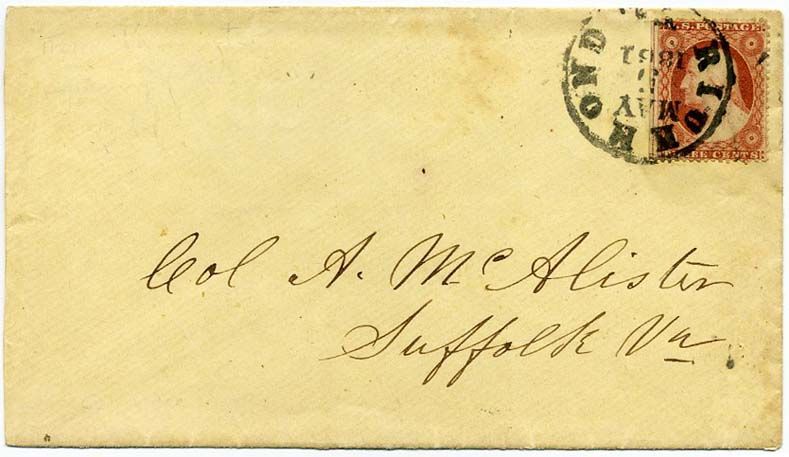 U.S. POSTAGE.
THREE CENTS.
RICHMOND
MAY
1861
Col A. Mc Alister
Suffolk Va